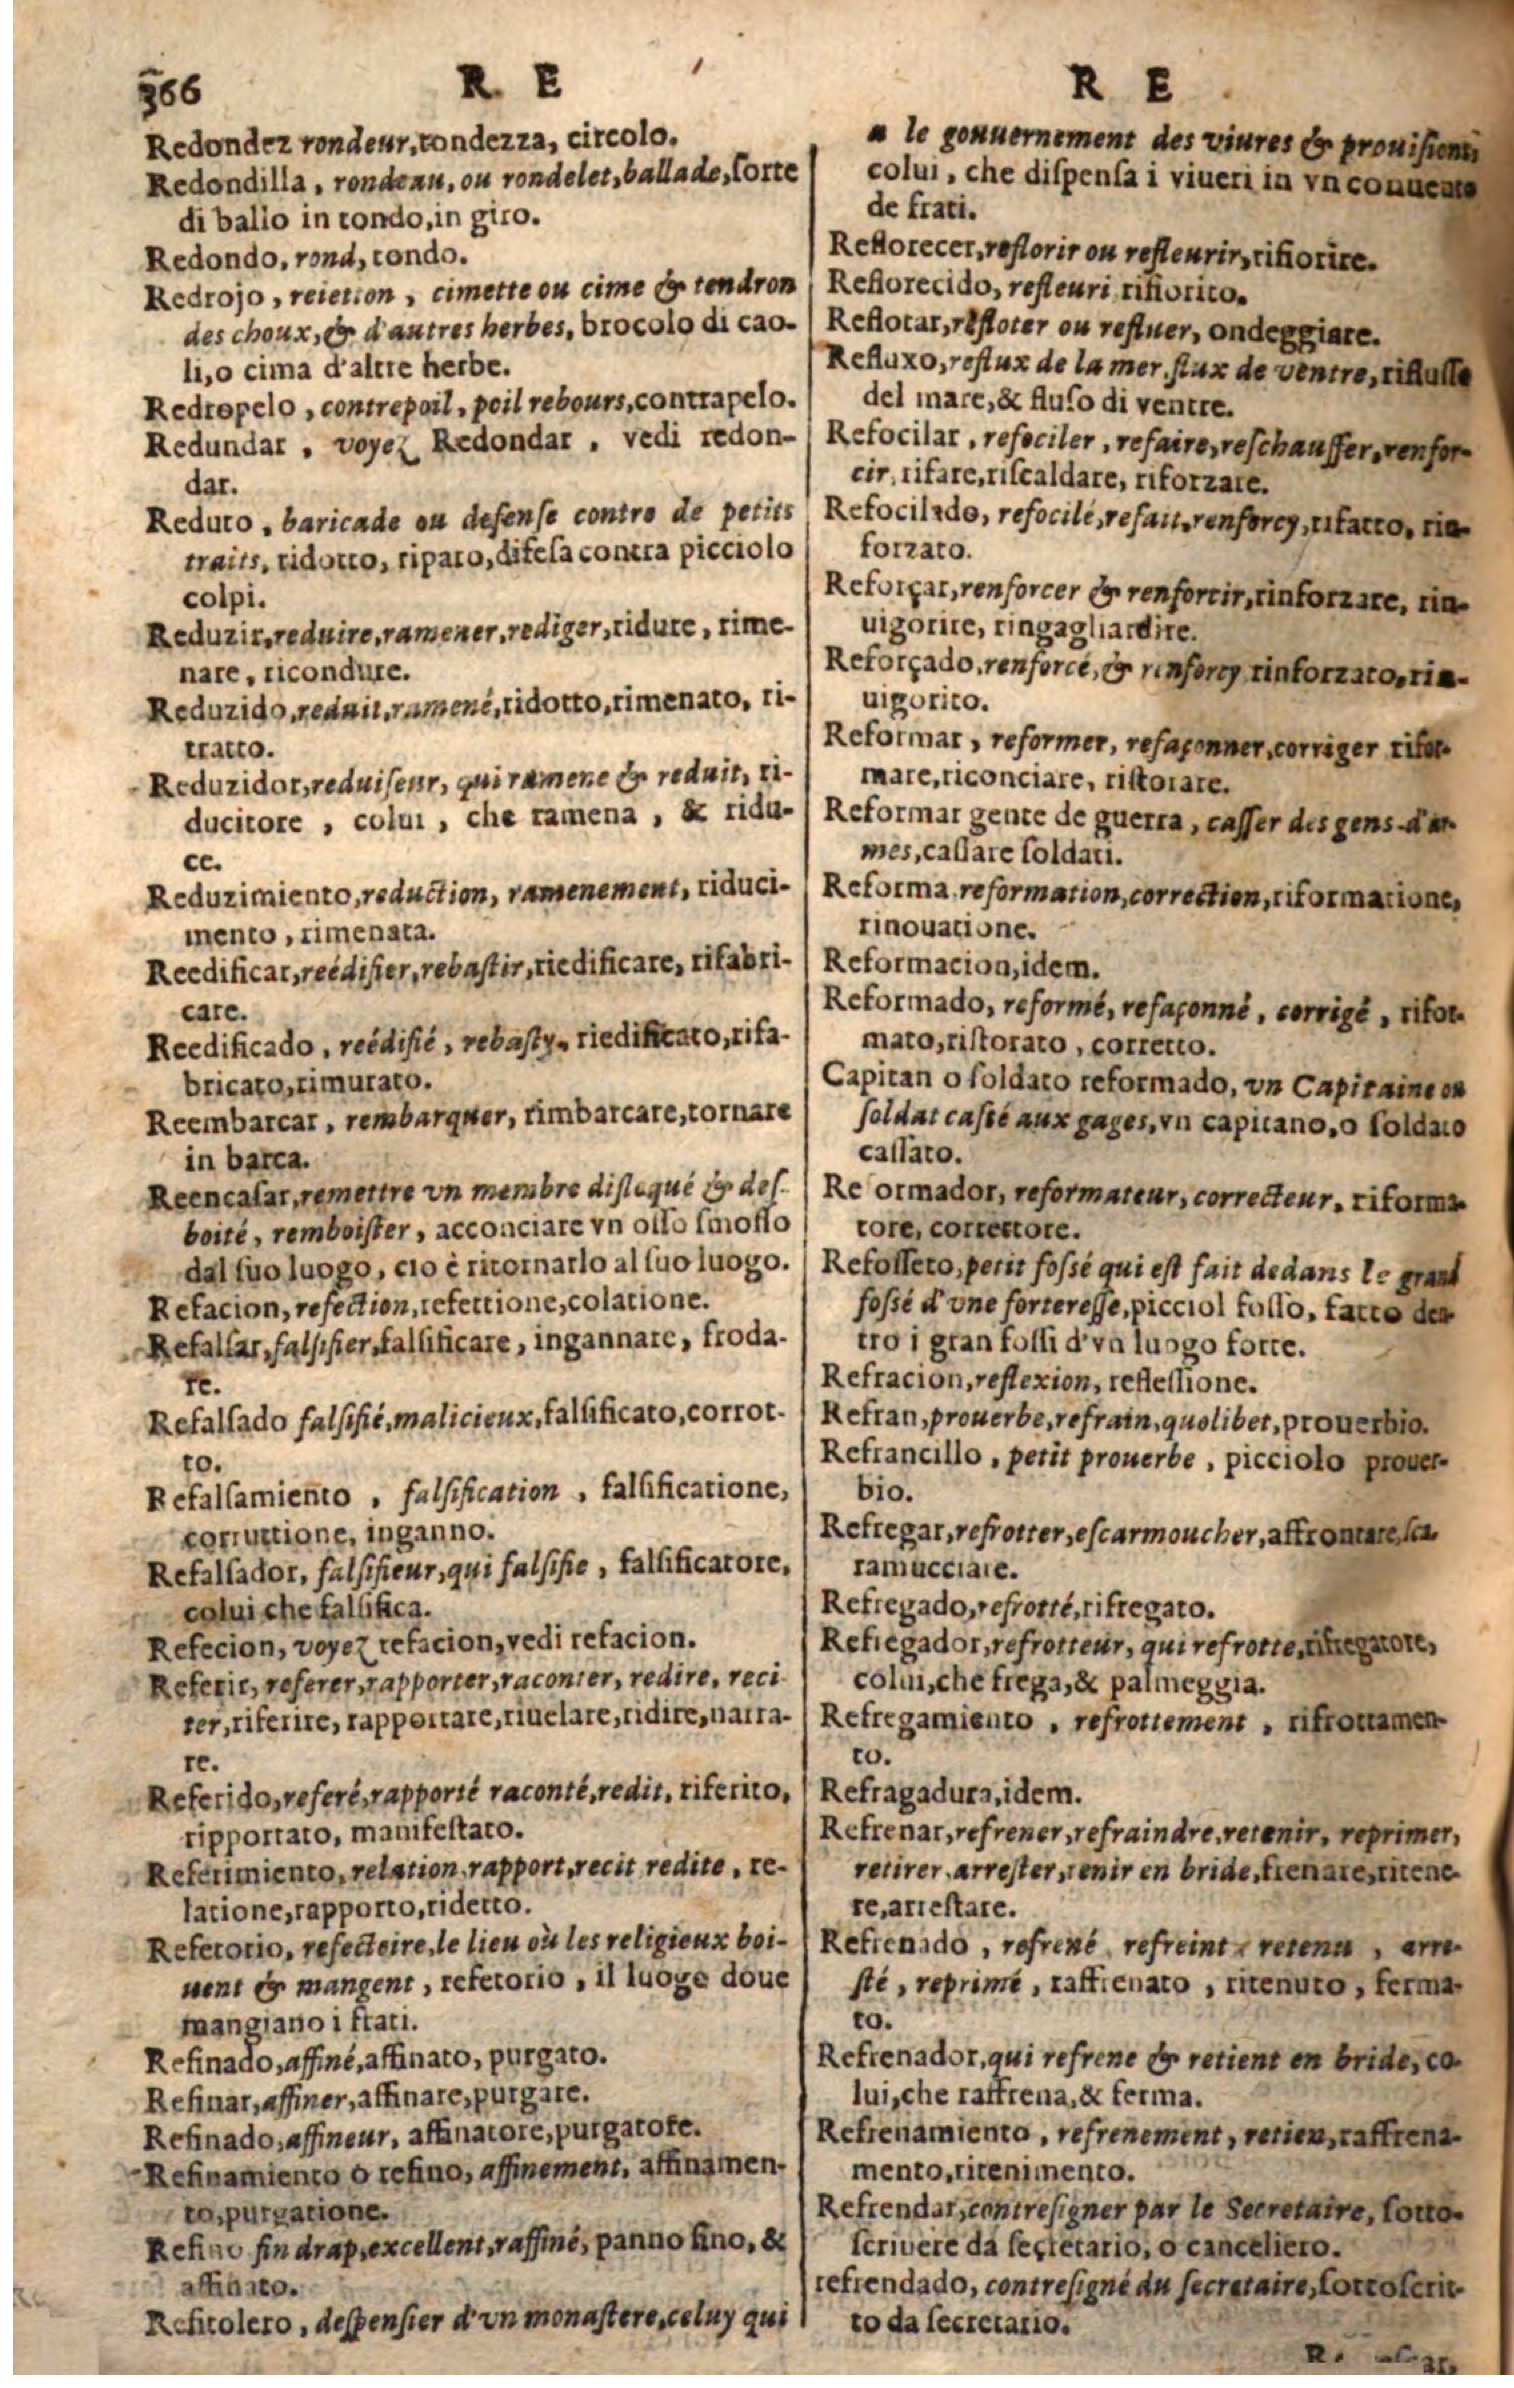 366 R E
Redondez rondeur, tondezza, circolo.
Redondilla, rondeau, ou rondelet, ballade, ſorte
di ballo in tondo, in giro.
Redondo, rond, tondo.
Redrojo, reietton, cimette ou cime & tendron
des choux, & d'autres herbes, brocolo di cao-
li, o cima d'altre herbe.
Redropelo, contrepoil, poil rebours, contrapelo.
Redundar, voyez Redondar, vedi redon-
dar.
Reduto, baricade ou defenſe contre de petits
traits, ridotto, riparo, difeſa contra picciolo
colpi.
Reduzir, reduire, ramener, rediger, ridure, rime-
nare, ricondure.
Reduzido, reduit, ramené, ridotto, rimenato, ri-
tratto.
Reduzidor, reduiſeur, qui ramene & reduit, ri-
ducitore, colui, che ramena, & ridu-
ce.
Reduzimiento, reduction, ramenement, riduci-
mento, rimenata.
Reedificar, reédifier, rebaſtir, riedificare, rifabri-
care.
Reedificado, reédifié, rebaſty, riedificato, rifa-
bricato, rimurato.
Reembarcar, rembarquer, rimbarcare, tornare
in barca.
Reencaſar, remettre vn membre diſloqué & deſ-
boité, remboiſter, acconciare vn oſſo ſmoſſo
dal ſuo luogo, cio è ritornarlo al ſuo luogo.
Refacion, refection, refettione, colatione.
Refalſar, falſifier, falſificare, ingannare, froda-
re.
Refalſado falſifié, malicieux, falſificato, corrot-
to.
Refalſamiento, falſification, falſificatione,
corruttione, inganno.
Refalſador, falſifieur, qui falſifie, falſificatore,
colui che falſifica.
Refecion, voyez refacion, vedi refacion.
Referir, referer, rapporter, raconter, redire, reci
ter, riferire, rapportare, riuelare, ridire, narra-
re.
Referido, referé, rapporté raconté, redit, riferito,
ripportato, manifeſtato.
Referimiento, relation, rapport, recit redite, re-
latione, rapporto, ridetto.
Refetorio, refectoire, le lieu où les religieux boi-
uent & mangent, refetorio, il luogo doue
mangiano i frati.
Refinado, affiné, affinato, purgato.
Refinar, affiner, affinare, purgare.
Refinado, affineur, affinatore, purgatore.
Refinamiento o refino, affinement, affinamen-
to, purgatione.
Refino fin drap, excellent, raffiné, panno fino, &
affinato.
Refitolero, deſpenſier d'vn monaſtere, celuy qui
R E
a le gouuernement des viures & prouiſions
colui, che diſpenſa i viueri in vn conuento
de frati.
Reflorecer, reflorir ou refleurir, rifiorire.
Reflorecido, refleuri, rifiorito.
Reflotar, refloter ou refluer, ondeggiare.
Refluxo, reflux de la mer, flux de ventre, rifluſſo
del mare, & fluſo di ventre.
Refocilar, refociler, refaire, reſchauffer, renfor-
cir, rifare, riſcaldare, riforzare.
Refocilado, refocilé, refait, renforcy, rifatto, rin-
forzato.
Reforçar, renforcer & renforcir, rinforzare, rin-
uigorire, ringagliardire.
Reforçado, renforcé, & renforcy rinforzato, rin-
uigorito.
Reformar, reformer, refaçonner, corriger rifor-
mare, riconciare, riſtorare.
Reformar gente de guerra, caſſer des gens-d'ar-
mes, caſſare ſoldati.
Reforma, reformation, correction, riformatione,
rinouatione.
Reformacion, idem.
Reformado, reformé, refaçonné, corrigé, rifor-
mato, riſtorato, corretto.
Capitan o ſoldato reformado, vn Capitaine ou
ſoldat caſſé aux gages, vn capitano, o ſoldato
caſſato.
Re ormador, reformateur, correcteur, riforma-
tore, correttore.
Refoſſeto, petit foſſé qui eſt fait dedans le grand
foſſé d'vne forterеſſe, picciol foſſo, fatto den-
tro i gran foſſi d'vn luogo forte.
Refracion, reflexion, refleſſione.
Refran, prouerbe, refrain, quolibet, prouerbio.
Refrancillo, petit prouerbe, picciolo prouer-
bio.
Refregar, refrotter, eſcarmoucher, affrontare, ſca-
ramucciare.
Refregado, refrotté, rifregato.
Refregador, refrotteur, qui refrotte, rifregatore,
colui, che frega, & palmeggia.
Refregamiento, refrottement, rifrottamen-
to.
Refragadura, idem.
Refrenar, refrener, refraindre, retenir, reprimer,
retirer, arreſter, tenir en bride, frenare, ritene-
re, arreſtare.
Refrenado, refrené, refreint, retenu, arre-
ſté, reprimé, raffrenato, ritenuto, ferma-
to.
Refrenador, qui refrene & retient en bride, co-
lui, che raffrena, & ferma.
Refrenamiento, refrenement, retien, raffrena-
mento, ritenimento.
Refrendar, contreſigner par le Secretaire, ſotto-
ſcriuere da ſecretario, o canceliero.
refrendado, contreſigné du ſecretaire, ſottoſcrit-
to da ſecretario.